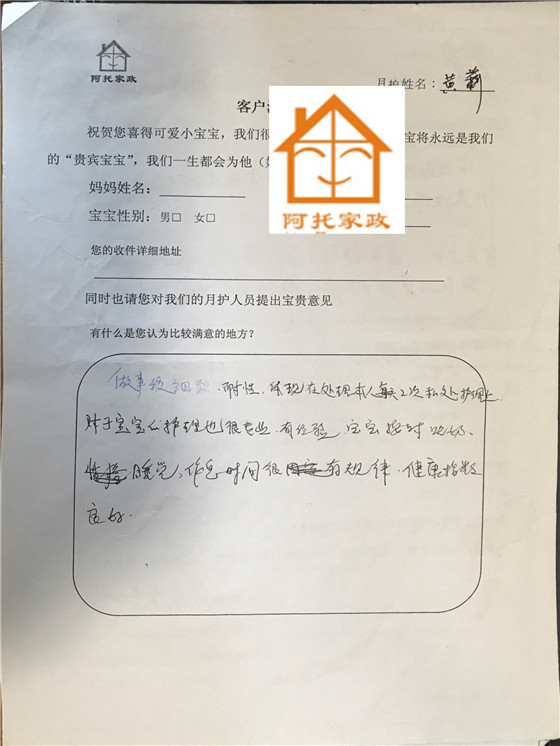 阿托家政
月护姓名：黄
客户
祝贺您喜得可爱小宝宝，我们很 宝将永远是我们
的“贵宾宝宝”，我们一生都会为他（
阿托家政
妈妈姓名：
宝宝性别：男□ 女□
您的收件详细地址
同时也请您对我们的月护人员提出宝贵意见
有什么是您认为比较满意的地方？
做事很细致，耐性，体现在处理本人每天2次私处护理上
对于宝宝的护理也很专业，有经验，宝宝按时吃奶、
睡觉，作息时间很有规律，健康指数
良好.